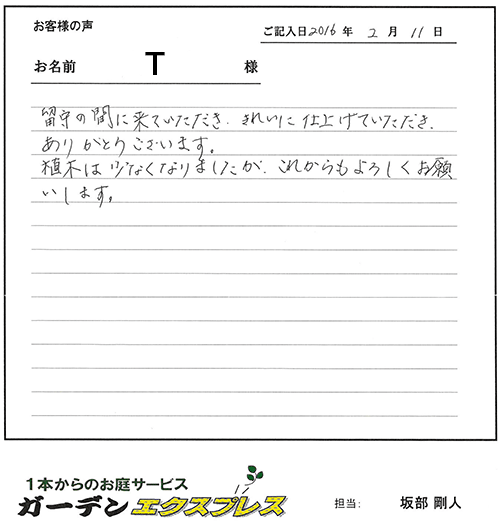 お客様の声
ご記入日2016年 2月 11日
お名前 T 様
留守の間に来ていただき、きれいに仕上げていただき、
ありがとうございます。
植木は少なくなりましたが、これからもよろしくお願
いします。
1本からのお庭サービス
ガーデンエクスプレス
担当: 坂部 剛人